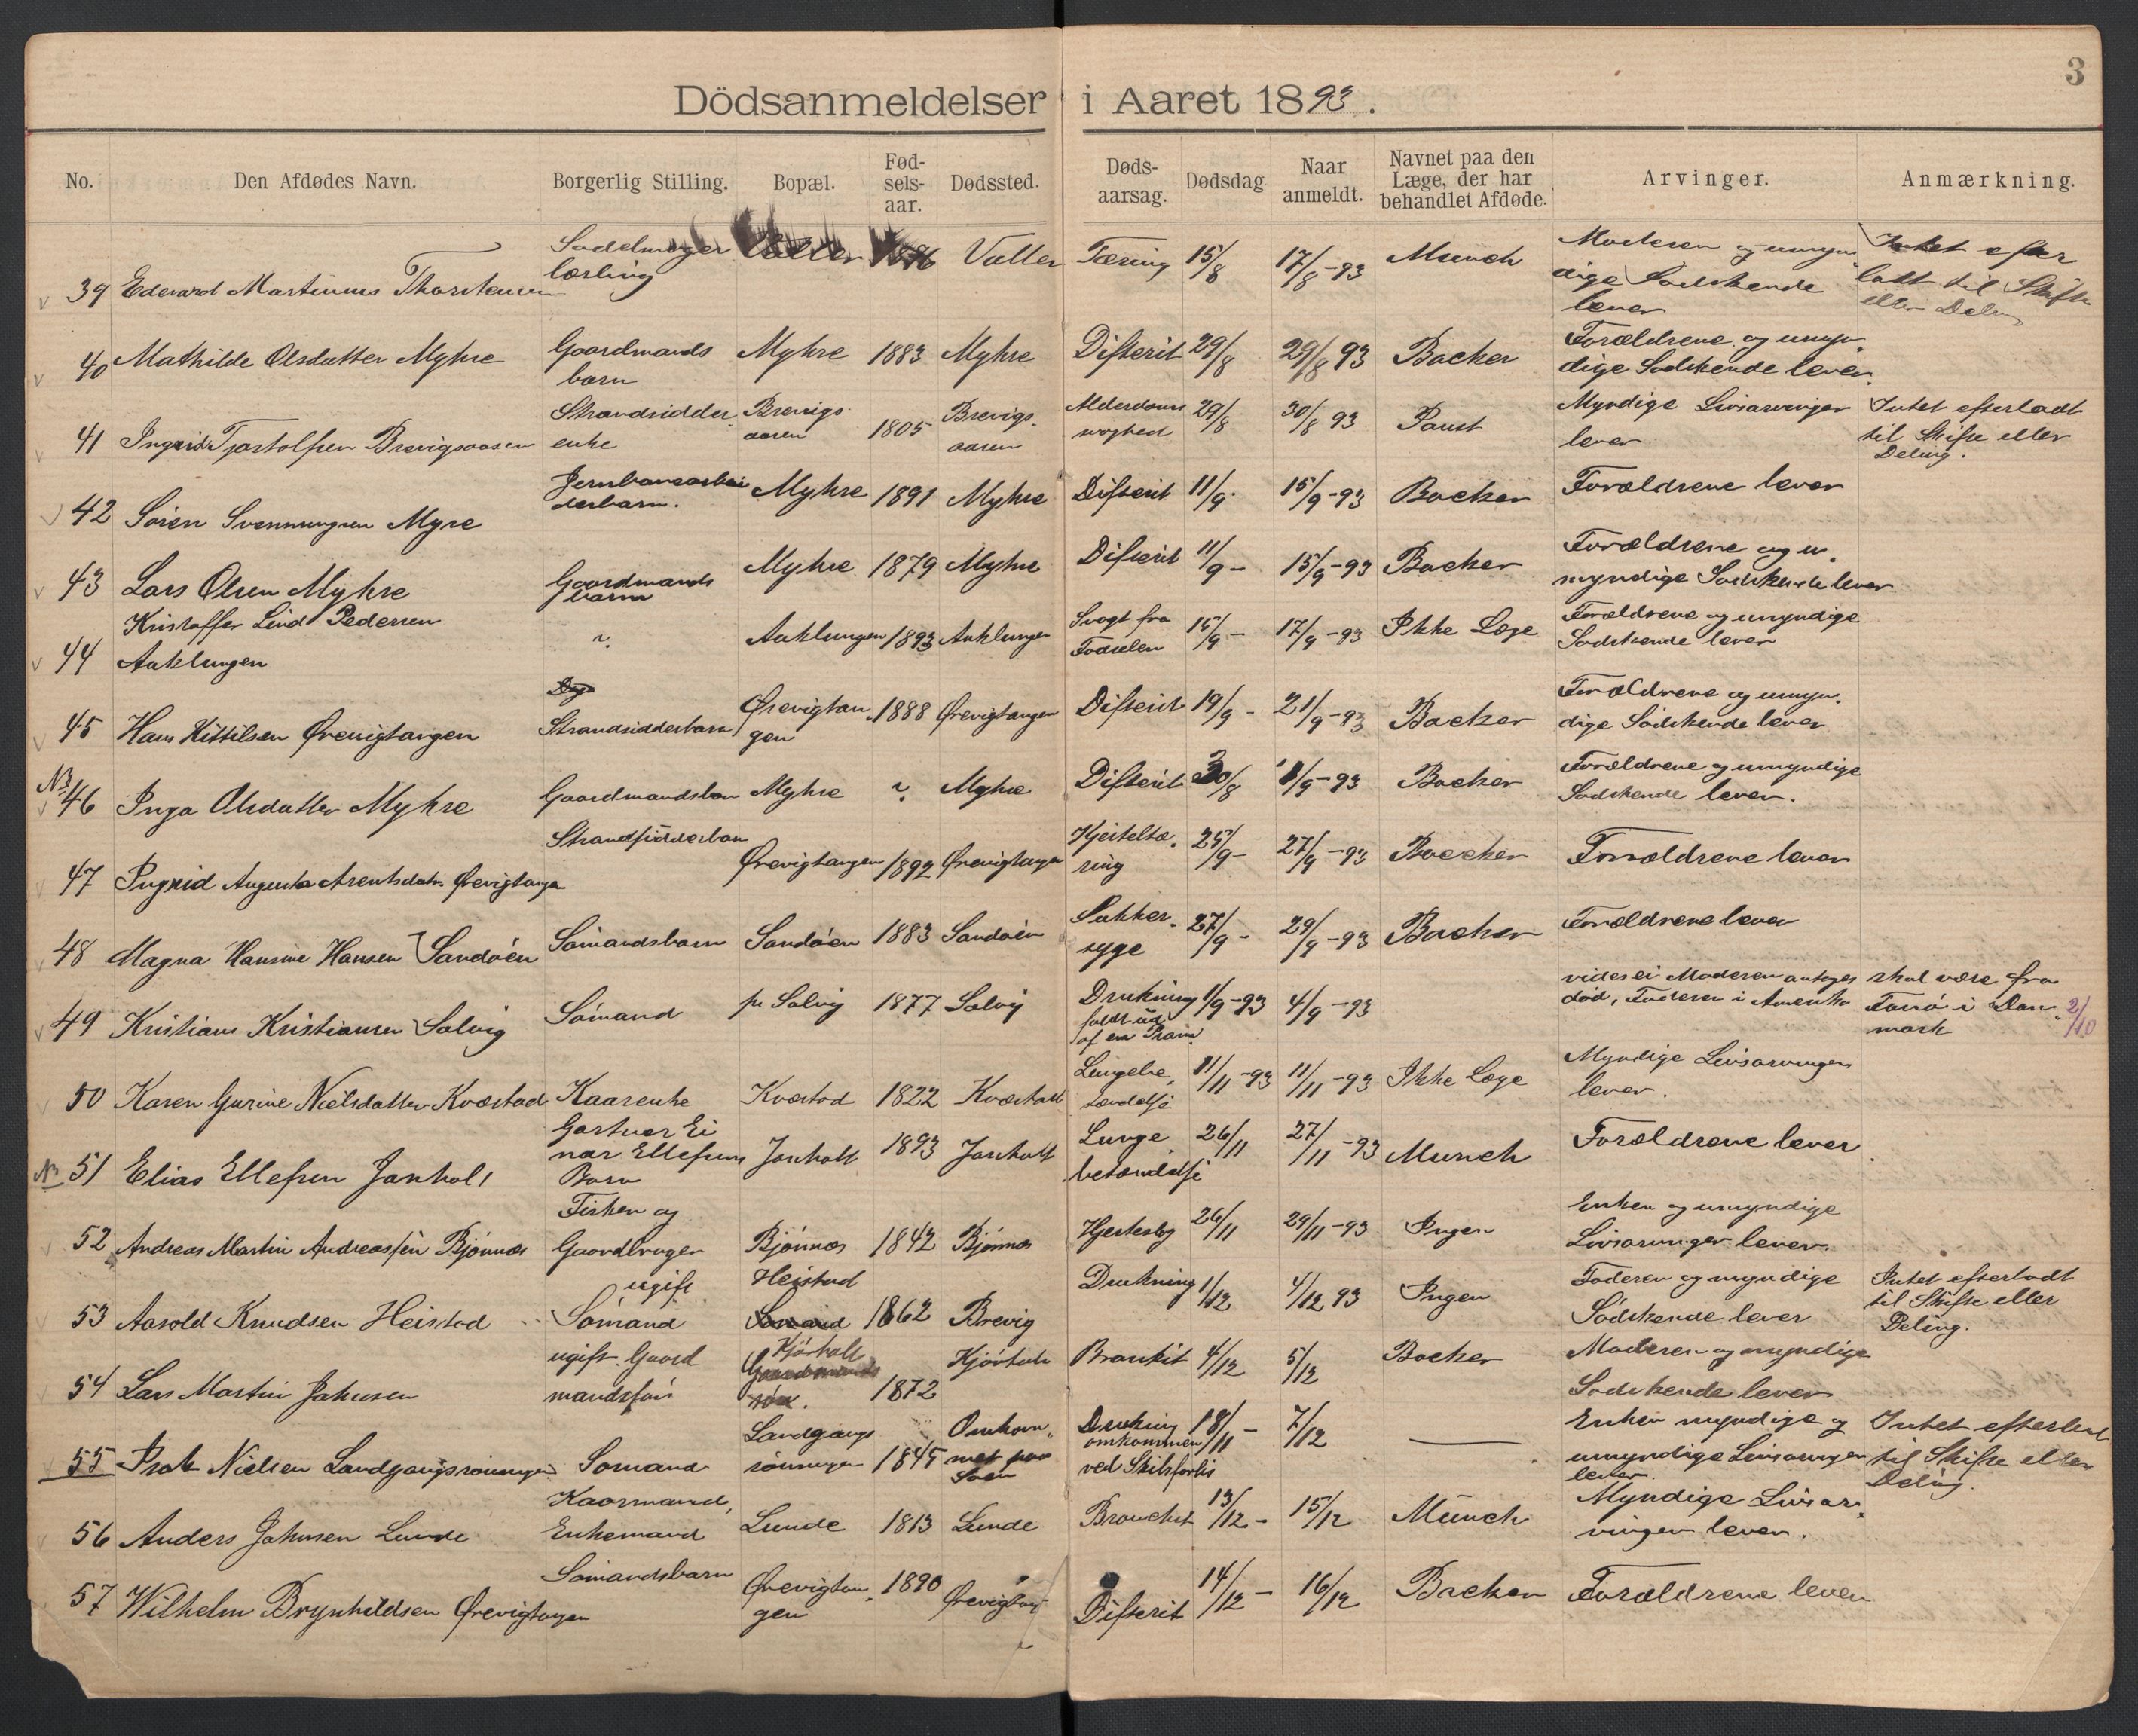 3
Dödsanmeldelser i Aaret 1893.
No. Den Afdødes Navn. Borgerlig Stilling. Bopæl. Fød-sels-aar. Dødssted. Døds-aarsag. Dødsdag Naar anmeldt. Navnet paa den Læge, der har behandlet Afdøde. Arvinger. Anmærkning.
39 Edevard Martinius Thorstensen Sadelmager lærling Valler Valler Tæring 15/8 17/8-93 Munch Moderen og umyn dige Sødskende lever Intet efter ladt til Skifte eller Deling
40 Mathilde Olsdatter Myhre Gaardmands barn Myhre 1883 Myhre Difterit 29/8 29/8 93 Backer Forældrene og umyn. dige Sødskende lever.
41 Ingrid Tjostolfsen Brevigsaasen Strandsidder enke Brevigs aasen 1805 Brevigs. aasen Alderdoms svaghed 29/8 30/8 93 Paust Myndige Livsarvinger lever Intet efterladt til Skifte eller Deling.
42 Søren Svennungsen Myre Jernbanearbei derbarn. Myhre 1891 Myhre Difterit 11/9. 15/9-93 Backer Forældrene lever
43 Lars Olsen Myhre Gaardmands barn Myhre 1879 Myhre Difterit 11/9- 15/9-93 Backer Forældrene og u. myndige Sødskende lever
44 Kristoffer Lind Pedersen Aaklungen " Aaklungen 1893 Aaklungen Svagt fra Fødselen 15/9- 17/9-93 Ikke Læge Forældrene og umyndige Sødskende lever
45 Hans Kittilsen Ørevigtangen Strandsidderbarn Ørevigtan gen 1888 Ørevigtangen Difterit 19/9- 21/9-93 Backer Forældrene og umyn. dige Sødskende lever
N3 46 Inga Olsdatter Myhre Gaardmandsbarn Myhre " Myhre Difterit 30/8 1/9-93 Backer Forældrene og umyndige Sødskende lever.
47 Ingrid Augusta Arentsdatr. Ørevigtangen Strandsidderbarn Ørevigtangen 1892 Ørevigtangen Kjerteltæ. ring 25/9- 27/9-93 Backer Forældrene lever
48 Magna Hansine Hansen Sandøen Sømandsbarn Sandøen 1883 Sandøen Sukker. syge 27/9- 29/9-93 Backer Forældrene lever
49 Kristians Kristiansen Salvig Sømand pr Salvig 1877 Salvig Drukning faldt ud af en Pram 1/9-93 4/9-93 vides ei Moderen antages død, Faderen i Amerika skal være fra Fanø i Dan. mark 2/10
50 Karen Gurine Nielsdatter Kvæstad Kaarenke Kvæstad 1822 Kvæstad Lungebe. tændelse 11/11-93 11/11-93 Ikke Læge Myndige Livsarvinger lever.
N3 51 Elias Ellefsen Jønholt Gartner Ei nar Ellefsens Barn Jønholt 1893 Jønholt Lunge betændelse 26/11 27/11-93 Munch Forældrene lever
52 Andreas Martin Andreassen Bjønnes Fisker og Gaardbruger Bjønnes 1842 Bjønnes Hjerteslag 26/11 29/11-93 Ingen Enken og umyndige Livsarvinger lever.
53 Aasold Knudsen Heistad ugift Sømand Heistad 1862 Brevig Drukning 1/12 4/12 93 Ingen Faderen og myndige Sødskende lever Intet efterladt til Skifte eller Deling.
54 Lars Martin Jahnsen ugift Gaard mandssøn Kjørholt 1872 Kjørholt Bronkit 4/12 5/12 Backer Moderen og myndige Sødskende lever
55 Isak Nielsen Landgangsrønningen Sømand Landgangs rønningen 1845 Omkom. met paa Søen Drukning omkommen ved Skibsforlis 18/11- 7/12 Enken myndige og umyndige Livsarvinger lever. Intet efterladt til Skifte eller Deling.
56 Anders Jahnsen Lunde Kaarmand, Enkemand Lunde 1813 Lunde Bronchit 13/12- 15/12 Münch Myndige Livsar. vinger lever.
57 Wilhelm Brynhildsen Ørevigtangen Sømandsbarn Ørevigtan. gen 1890 Ørevigtang Difterit 14/12- 16/12 Backer Forældrene lever